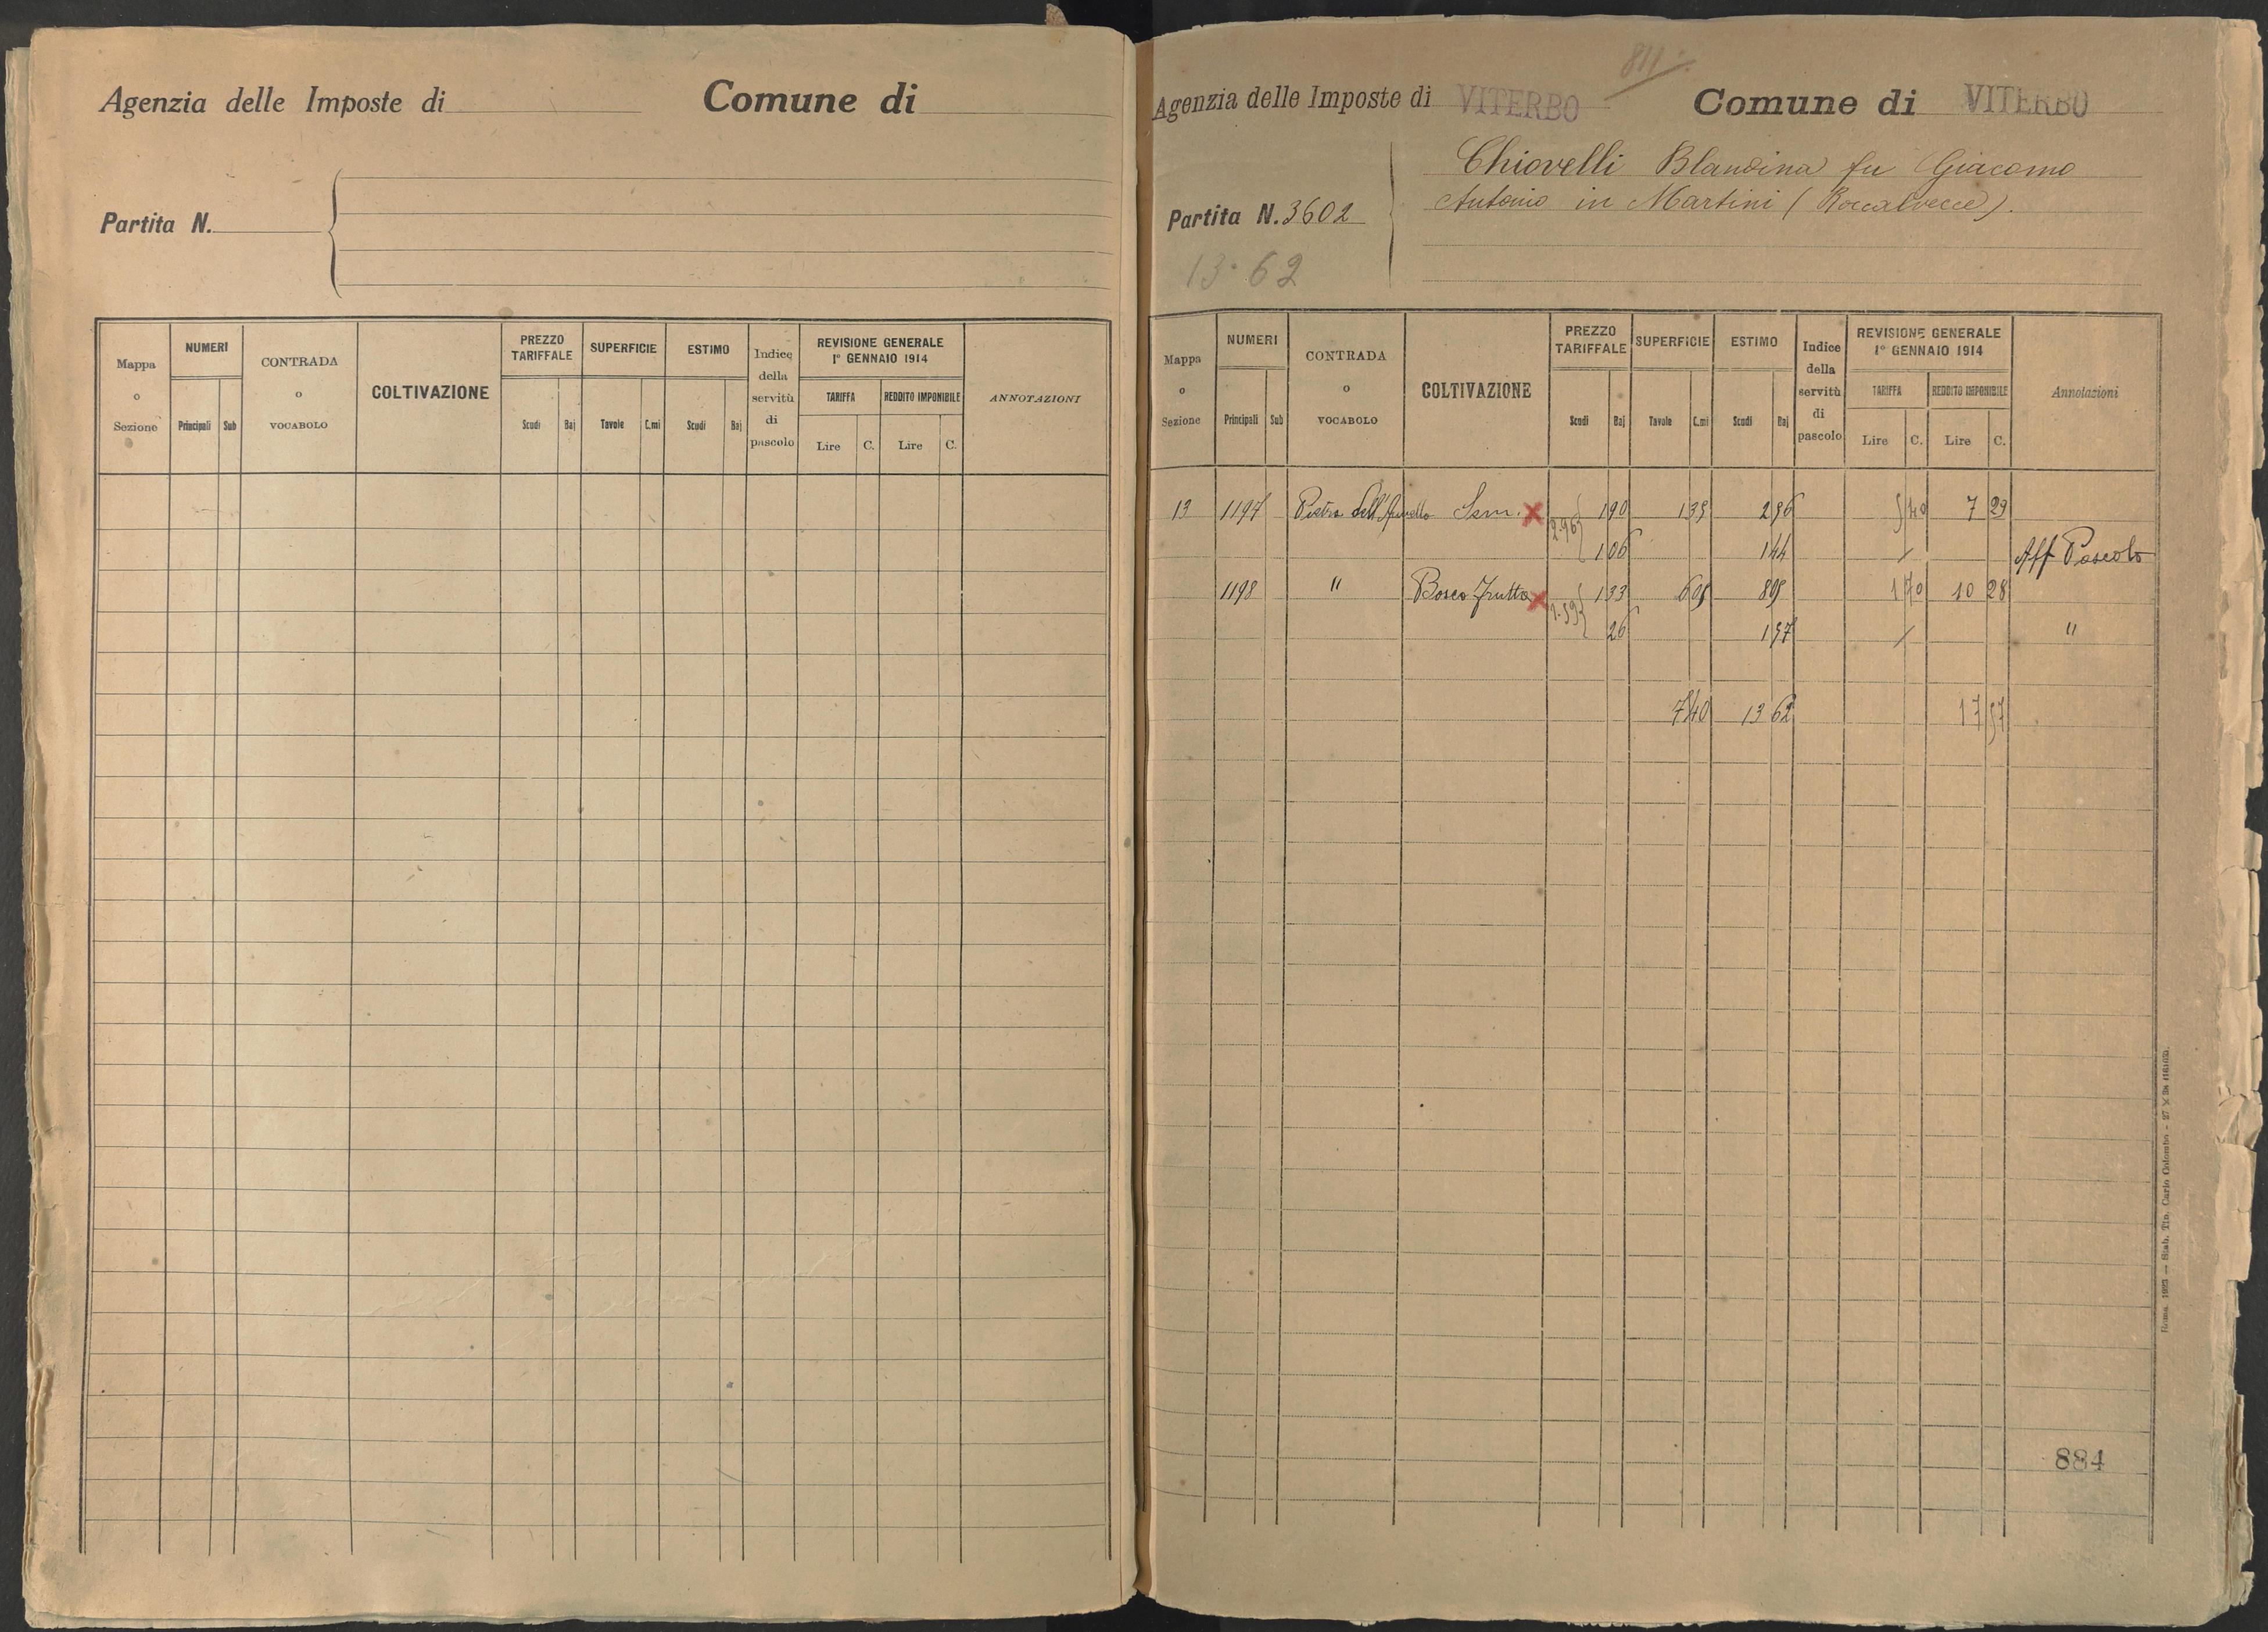 Agenzia delle Imposte di Comune di
Partita N.
Mappa o Sezione NUMERI Principali Sub CONTRADA o VOCABOLO COLTIVAZIONE PREZZO TARIFFALE Scudi Baj SUPERFICIE Tavole C.mi ESTIMO Scudi Baj Indice della servitù di pascolo REVISIONE GENERALE 1° GENNAIO 1914 TARIFFA Lire C. REDDITO IMPONIBILE Lire C. ANNOTAZIONI
811
Agenzia delle Imposte di VITERBO Comune di VITERBO
Chiovelli Blandina fu Giacomo
Antonio in Martini (Roccalvecce).
Partita N. 3602
13.62
Mappa o Sezione NUMERI Principali Sub CONTRADA o VOCABOLO COLTIVAZIONE PREZZO TARIFFALE Scudi Baj SUPERFICIE Tavole C.mi ESTIMO Scudi Baj Indice della servitù di pascolo REVISIONE GENERALE 1° GENNAIO 1914 TARIFFA Lire C. REDDITO IMPONIBILE Lire C. Annotazioni
13 1197 Pietra dell'Anello Sem. 2.96 190 135 256 5 40 7 29
106 144 / Aff Pascolo
1198 " Bosco frutto 1.59 133 605 805 1 70 10 28
26 157 / "
7 40 13 62 17 57
884
Roma, 1923 — Stab. Tip. Carlo Colombo - 27 X 38